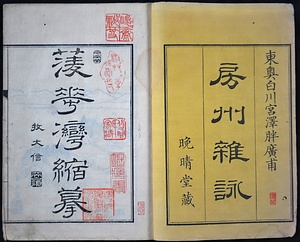 東奧白川宮澤胖廣甫
房州雜詠
晩晴堂藏
蓤華灣縮摹
牧大信